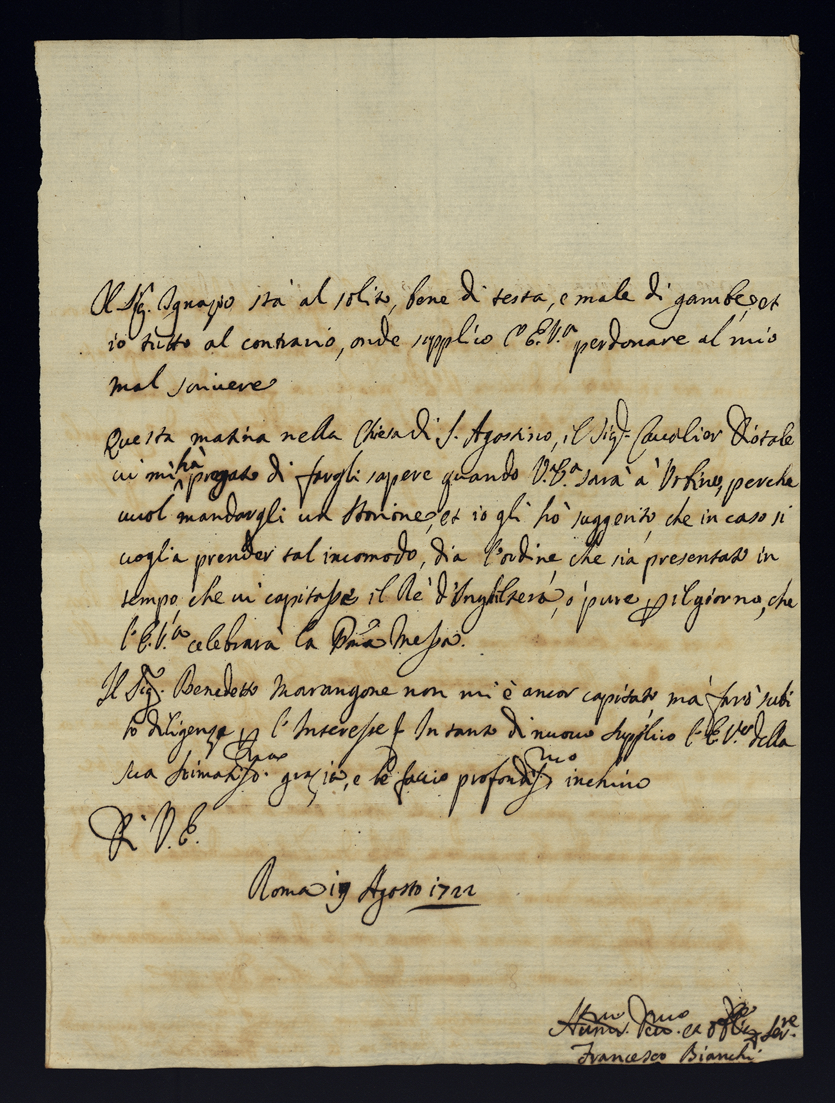 Il Sig. Ignazio stà al solito, bene di testa, e male di gambe, et
io tutto al contrario, onde supplico l'E.V.a perdonare al mio
mal scrivere
Questa matina nella Chiesa di S. Agostino, il Sig.r Cavalier
vi mi hà pregato di fargli sapere quando V.E.a sarà à Urbino, perche
vuol mandargli un storione, et io gli hò suggerito, che in caso si
voglia prender tal incomodo, dia l'ordine che sia presentato in
tempo, che vi capitasse il Rè d'Inghilterà, ò pure p il giorno, che
l'E.V.a celebrarà la Pma Messa.
Il Sig. Benedetto Marangone non mi è ancor capitato mà farò subi
to diligenza p l'Interesse Intanto di nuovo supplico l'E.V.a della
sua stimatissma grazia, e le faccio profondissmo inchino
Di V.E.
Roma 19 Agosto 1722
Hummo Devmo et Serre
Francesco Bianchi